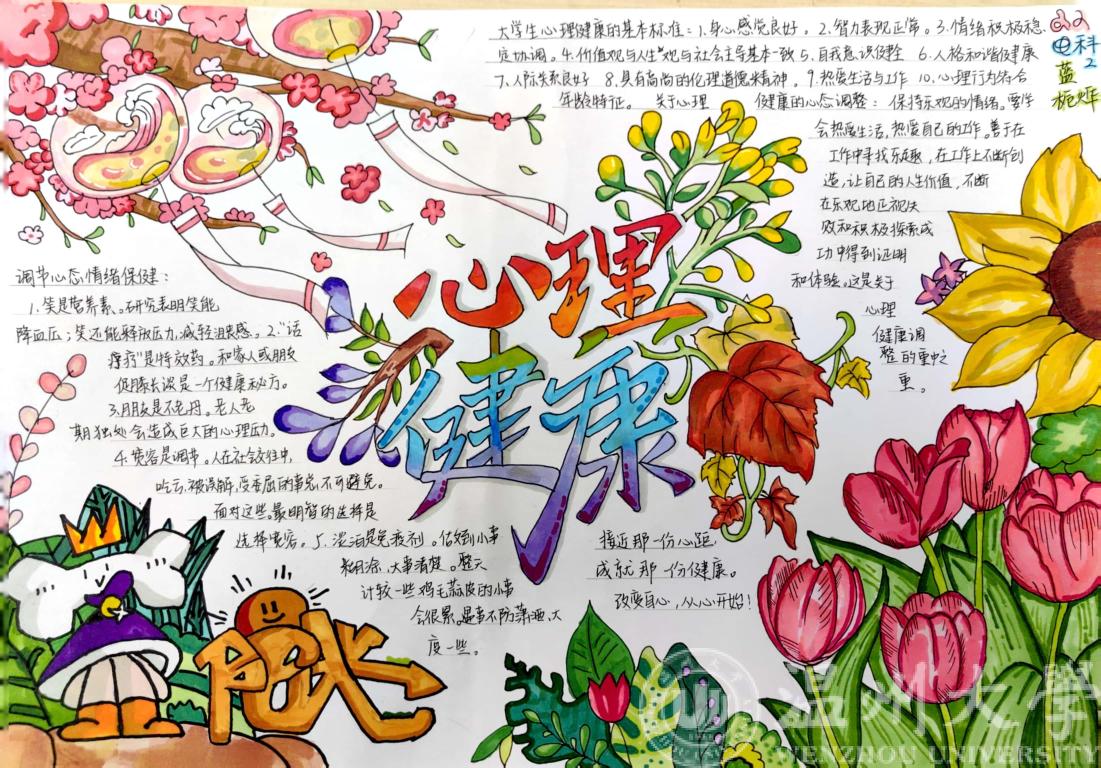 大学生心理健康的基本标准：1.身心感觉良好。2.智力表现正常。3.情绪积极稳
定协调。4.价值观与人生观与社会主导基本一致 5.自我意识健全 6.人格和谐健康
7.人际关系良好 8.具有高尚的伦理道德精神。9.热爱生活与工作 10.心理行为符合
年龄特征。 关于心理 健康的心态调整：保持乐观的情绪。要学
会热爱生活，热爱自己的工作。善于在
工作中寻找乐趣，在工作上不断创
造，让自己的人生价值，不断
在乐观地正视失
败和积极探索成
功中得到证明
和体验。这是关于
心理
健康调
整的重中之
重。
22
电科2
蓝
心理
健康
调节心态情绪保健：
1.笑是营养素。研究表明笑能
降血压；笑还能释放压力，减轻沮丧感。2."话
疗"是特效药。和家人或朋友
促膝长谈是一个健康秘方。
3.朋友是不老丹。老人老
期独处会造成巨大的心理压力。
4.宽容是调节。人在社会交往中，
吃亏、被误解，受委屈的事免，不可避免。
面对这些。最明智的选择是
选择宽容。5.淡泊是免疫剂。做到小事
糊涂，大事清楚。整天
计较一些鸡毛蒜皮的小事
会很累。遇事不防潇洒、大
度一些。
接近那一份心距，
成就那一份健康。
改变自心，从心开始！
温州大学
WENZHOU UNIVERSITY